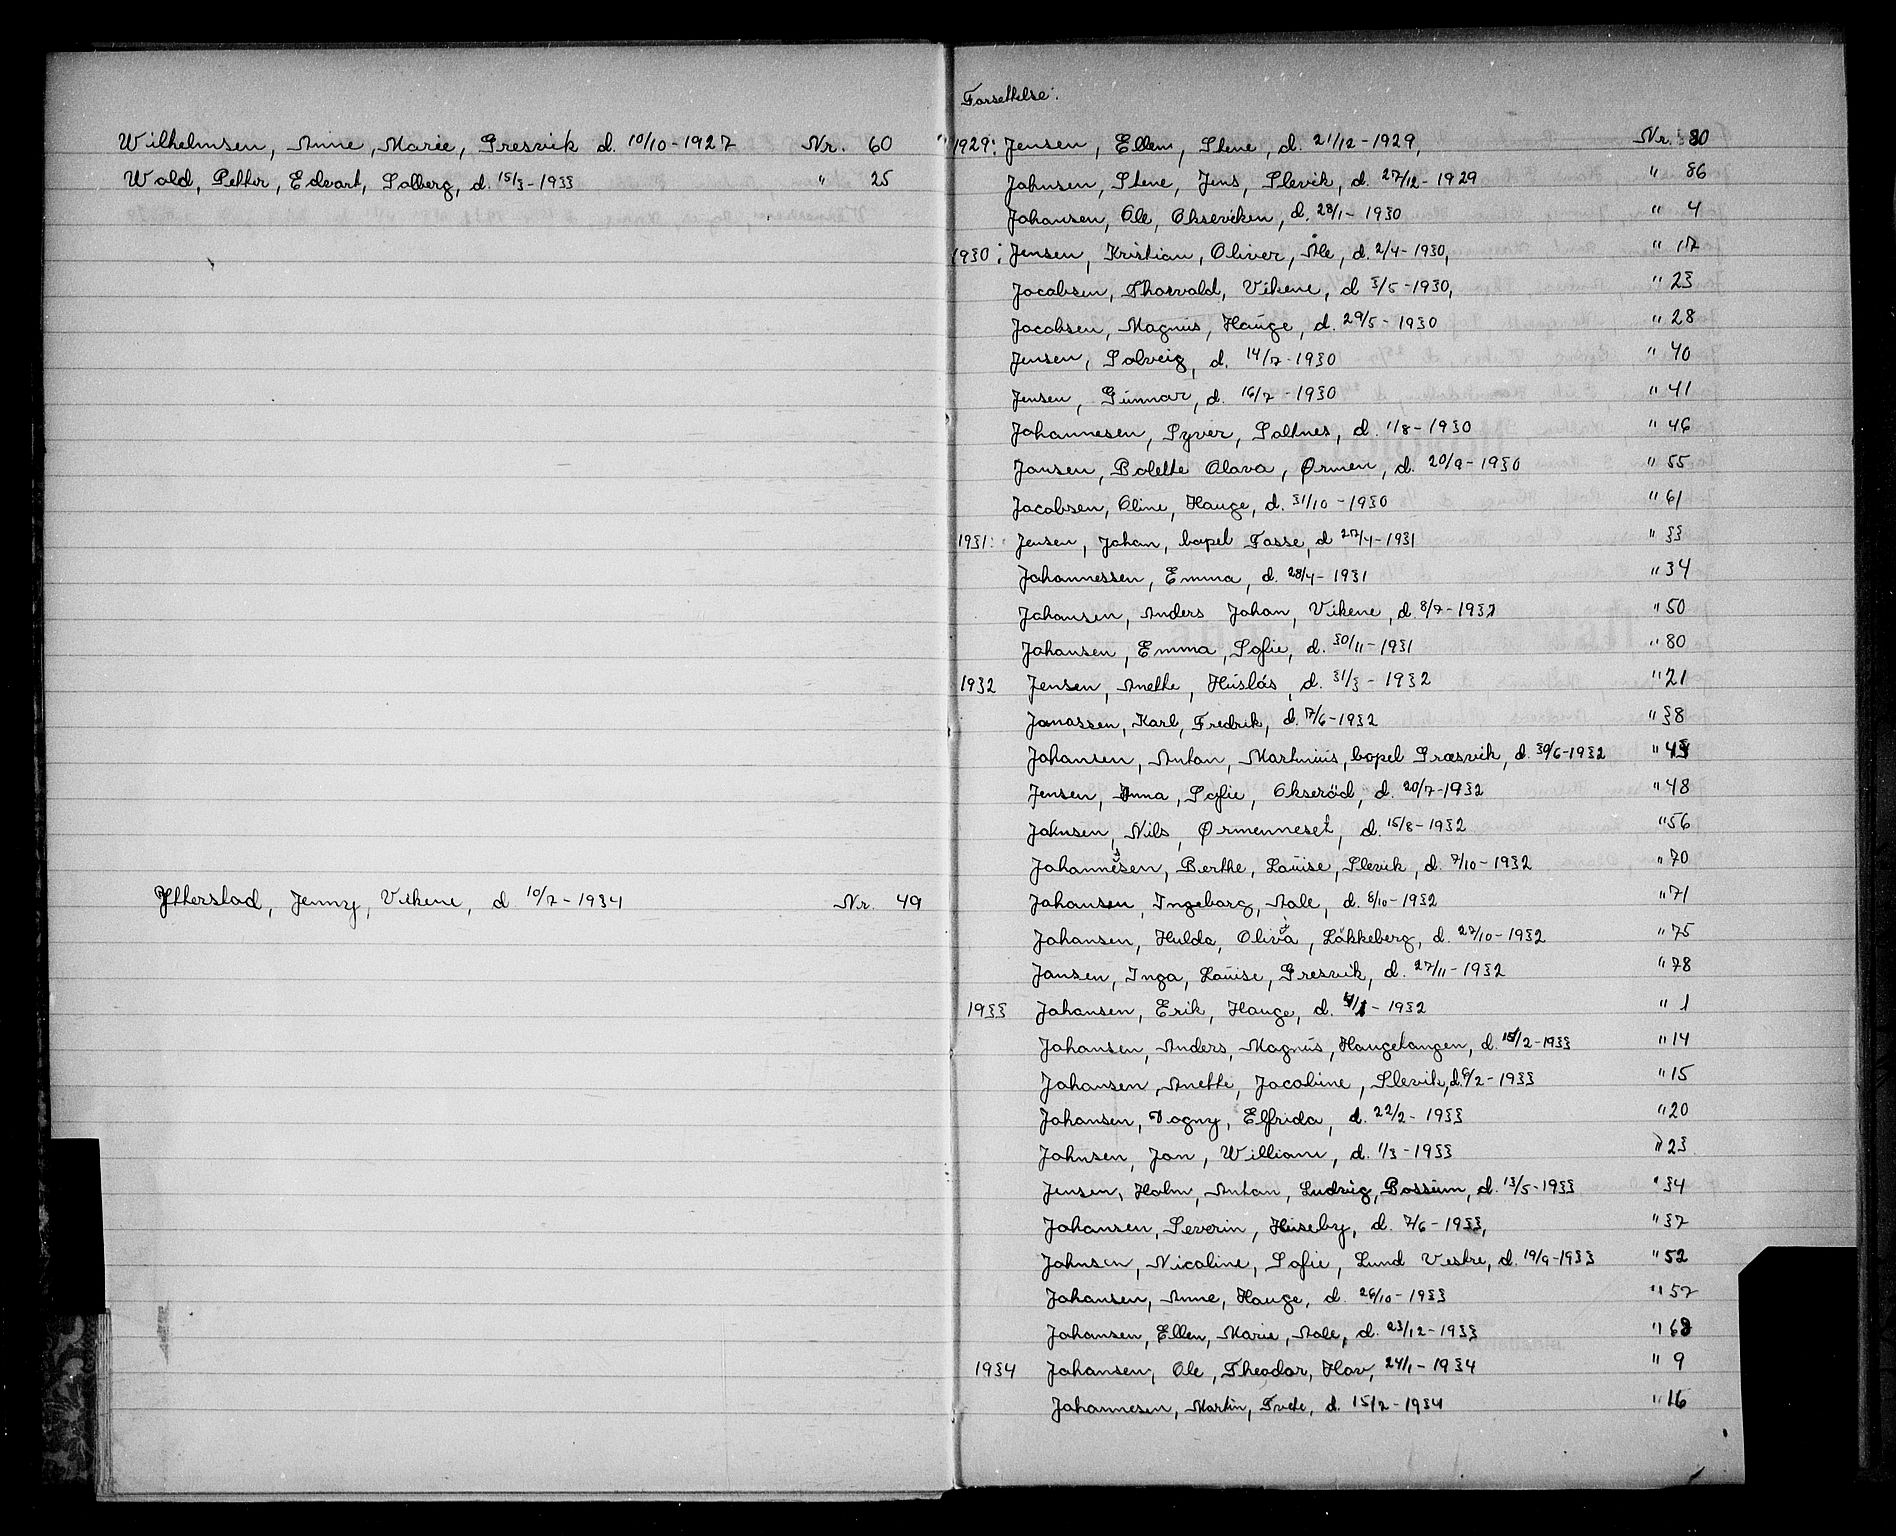 Wilhelmsen, Anne, Marie, Gresvik d. 10/10-1927 Nr. 60
Wold, Petter, Edvart, Solberg, d. 15/3-1933 " 25
Ytterstad, Jenny, Vikene, d 10/7-1934 Nr. 49
Forsettelse:
1929: Jensen, Ellen, Stene, d. 21/12-1929, Nr. 80
Johnsen, Stene, Jens, Slevik, d. 27/12-1929 " 86
Johansen, Ole, Okseviken, d. 28/1-1930 " 4
1930: Jensen, Kristian, Oliver, Åle, d. 2/4-1930, " 17
Jacobsen, Thorvald, Vikene, d 3/5-1930, " 23
Jacobsen, Magnus, Hauge, d. 29/5-1930 " 28
Jensen, Solveig, d. 14/7-1930 " 40
Jensen, Gunnar, d. 16/7-1930 " 41
Johannesen, Syver, Saltnes, d. 1/8-1930 " 46
Jansen, Bolette Olava, Ørmen, d. 20/9-1930 " 55
Jacobsen, Oline, Hauge, d. 31/10-1930 " 61
1931: Jensen, Johan, bopel Fosse, d 27/4-1931 " 33
Johannessen, Emma, d. 28/4-1931 " 34
Johansen, Anders Johan, Vikene, d. 8/7-1932 " 50
Johansen, Emma, Sofie, d. 30/11-1931 " 80
1932 Jensen, Anette, Huslås, d. 31/3-1932 " 21
Jonassen, Karl, Fredrik, d. 7/6-1932 " 38
Johansen, Anton, Martinius, bopel Græsvik, d. 30/6-1932 "
Jensen, Anna, Sofie, Okseröd, d. 20/7-1932 " 48
Johnsen, Nils, Ørmenneset, d. 15/8-1932 " 56
Johannessen, Berthe, Louise, Slevik, d. 7/10-1932 " 70
Johansen, Ingeborg, Aale, d. 8/10-1932 " 71
Johansen, Hulda, Olivia, Låkkeberg, d. 27/10-1932 " 75
Jansen, Inga, Louise, Gresvik, d. 27/11-1932 " 78
1933 Johansen, Erik, Hauge, d. 4/1-1932 " 1
Johansen, Anders, Magnus, Haugetangen, d. 15/2-1933 " 14
Johansen, Anette, Jacobine, Slevik, d. 6/2-1933 " 15
Johansen, Dagny, Elfrida, d. 22/2-1933 " 20
Johnsen, Jon, William, d. 1/3-1933 " 23
Jensen, Holm, Anton, Ludvig, Bossum, d. 13/5-1933 " 34
Johansen, Severin, Huseby, d. 7/6-1933, " 37
Johnsen, Nicoline, Sofie, Lund Vestre, d. 19/9-1933 " 52
Johansen, Anne, Hauge, d. 26/10-1933 " 57
Johansen, Ellen, Marie, Aale, d. 23/12-1933 " 68
1934 Johansen, Ole, Theodor, Hov, 24/1-1934 " 9
Johannesen, Martin, Tvete, d. 15/2-1934 " 16